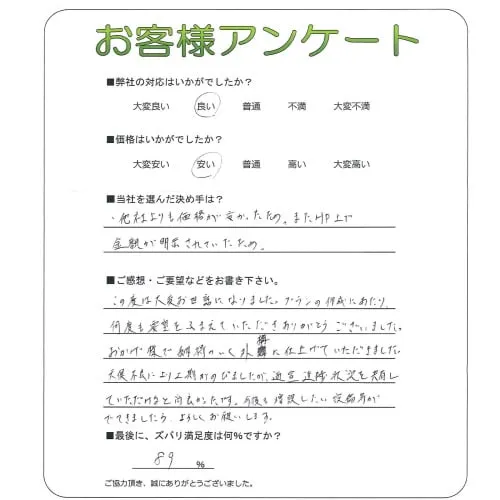 お客様アンケート
■弊社の対応はいかがでしたか？
大変良い 良い 普通 不満 大変不満
■価格はいかがでしたか？
大変安い 安い 普通 高い 大変高い
■当社を選んだ決め手は？
・他社よりも価格が安かったため。またHP上で
金額が明示されていたため。
■ご感想・ご要望などをお書き下さい。
この度は大変お世話になりました。プランの作成にあたり、
何度も要望をふまえていただきありがとうございました。
おかげ様で納得のいく外構に仕上げていただきました。
天候不良により工期がのびましたが、適宜進捗状況を共有し
ていただけると尚良かったです。今後も増設したい設備等が
でてきましたら、よろしくお願いします。
■最後に、ズバリ満足度は何％ですか？
89 ％
ご協力頂き、誠にありがとうございました。